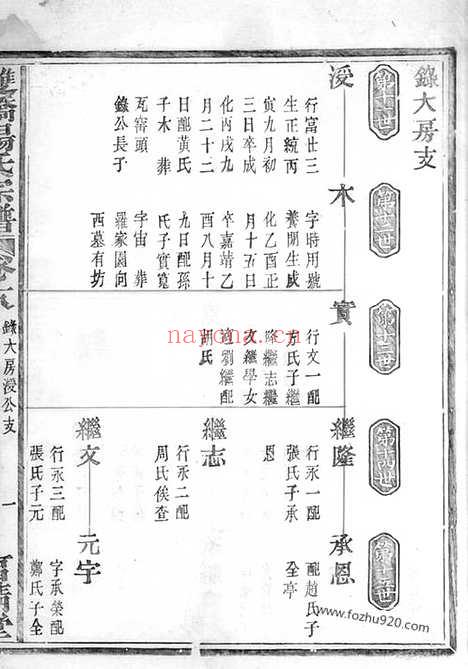 錄大房支
第十一世
第十二世
第十三世
第十四世
第十五世
浸
行富廿三
生正統丙
寅九月初
三日卒成
化丙戌九
月二十二
日配黃氏
子木 葬
瓦窑頭
錄公長子
木
字時用號
養閒生成
化乙酉正
月十五日
卒嘉靖乙
酉八月十
九日配孫
氏子實寬
字宙 葬
羅家園向
西墓有坊
實
行文一配
方氏子繼
隆繼志繼
文繼學女
適劉繼配
胡氏
繼隆
行永一配
張氏子承
恩
承恩
配趙氏子
全亭
繼志
行永二配
周氏俟查
繼文
行永三配
張氏子元
元宇
字承榮配
鄭氏子全
雙橋楊氏宗譜
錄大房浸公支
一
najona.org
www.fozhu920.com